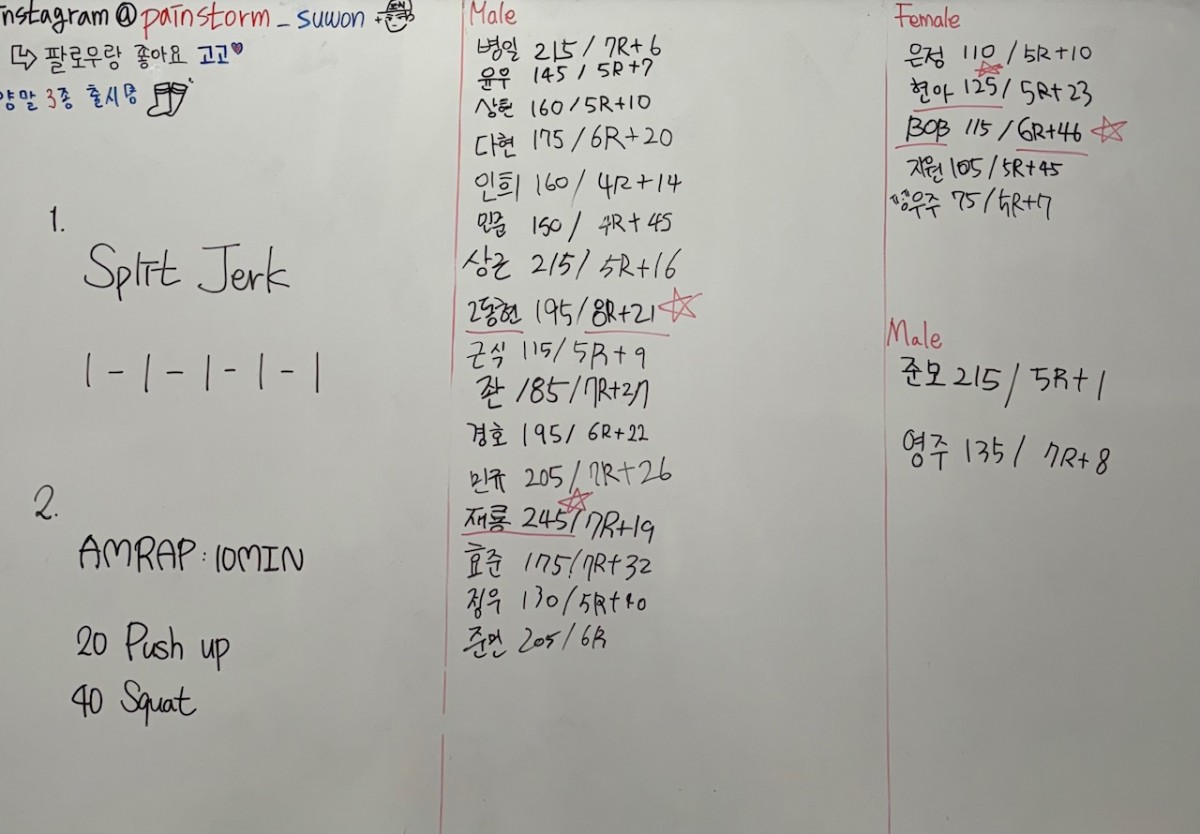 instagram @ painstorm _ suwon
팔로우랑 좋아요 고고
양말 3종 출시중
1.
Split Jerk
1 - 1 - 1 - 1 - 1
2.
AMRAP : 10MIN
20 Push up
40 Squat
Male
병일 215 / 7R+6
윤우 145 / 5R+7
상현 160 / 5R+10
다현 175 / 6R+20
인희 160 / 4R+14
민준 150 / 4R+45
상근 215 / 5R+16
2동현 195 / 8R+21
근식 115 / 5R+9
좐 185 / 7R+27
경호 195 / 6R+22
민규 205 / 7R+26
재룡 245 / 7R+19
효준 175 / 7R+32
정우 130 / 5R+40
준민 205 / 6R
Female
은정 110 / 5R+10
현아 125 / 5R+23
BOB 115 / 6R+46
지원 105 / 5R+45
우주 75 / 4R+7
Male
준모 215 / 5R+1
영주 135 / 7R+8